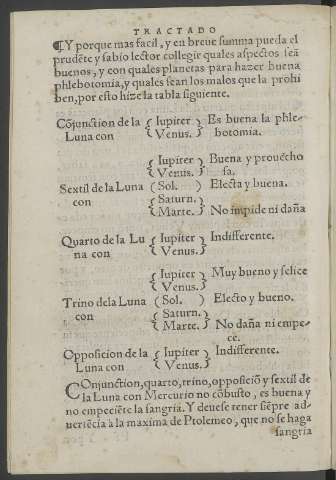 TRACTADO
¶Y porque mas facil, y en breue summa pueda el
prudẽte y sabio lector collegir quales aspectos seã
buenos, y con quales planetas para hazer buena
phlebotomia, y quales sean los malos que la prohi
ben, por esto hize la tabla siguiente.
Cõjunction de la { Iupiter } Es buena la phle-
Luna con { Venus. } botomia.
{ Iupiter } Buena y prouecho
{ Venus. } sa.
Sextil de la Luna (Sol. ) Electa y buena.
con { Saturn. }
{ Marte. } No impide ni daña
Quarto de la Lu { Iupiter } Indifferente.
na con { Venus. }
{ Iupiter } Muy bueno y felice
{ Venus. }
Trino dela Luna (Sol. ) Electo y bueno.
con { Saturn. }
{ Marte. } No daña ni empe-
ce.
Opposicion de la { Iupiter } Indifferente.
Luna con { Venus. }
COnjunction, quarto, trino, opposiciõ y sextil de
la Luna con Mercurio no cõbusto, es buena y
no empeciẽte la sangria. Y deuese tener siẽpre ad-
uertẽcia à la maxima de Ptolemeo, que no se haga
sangria